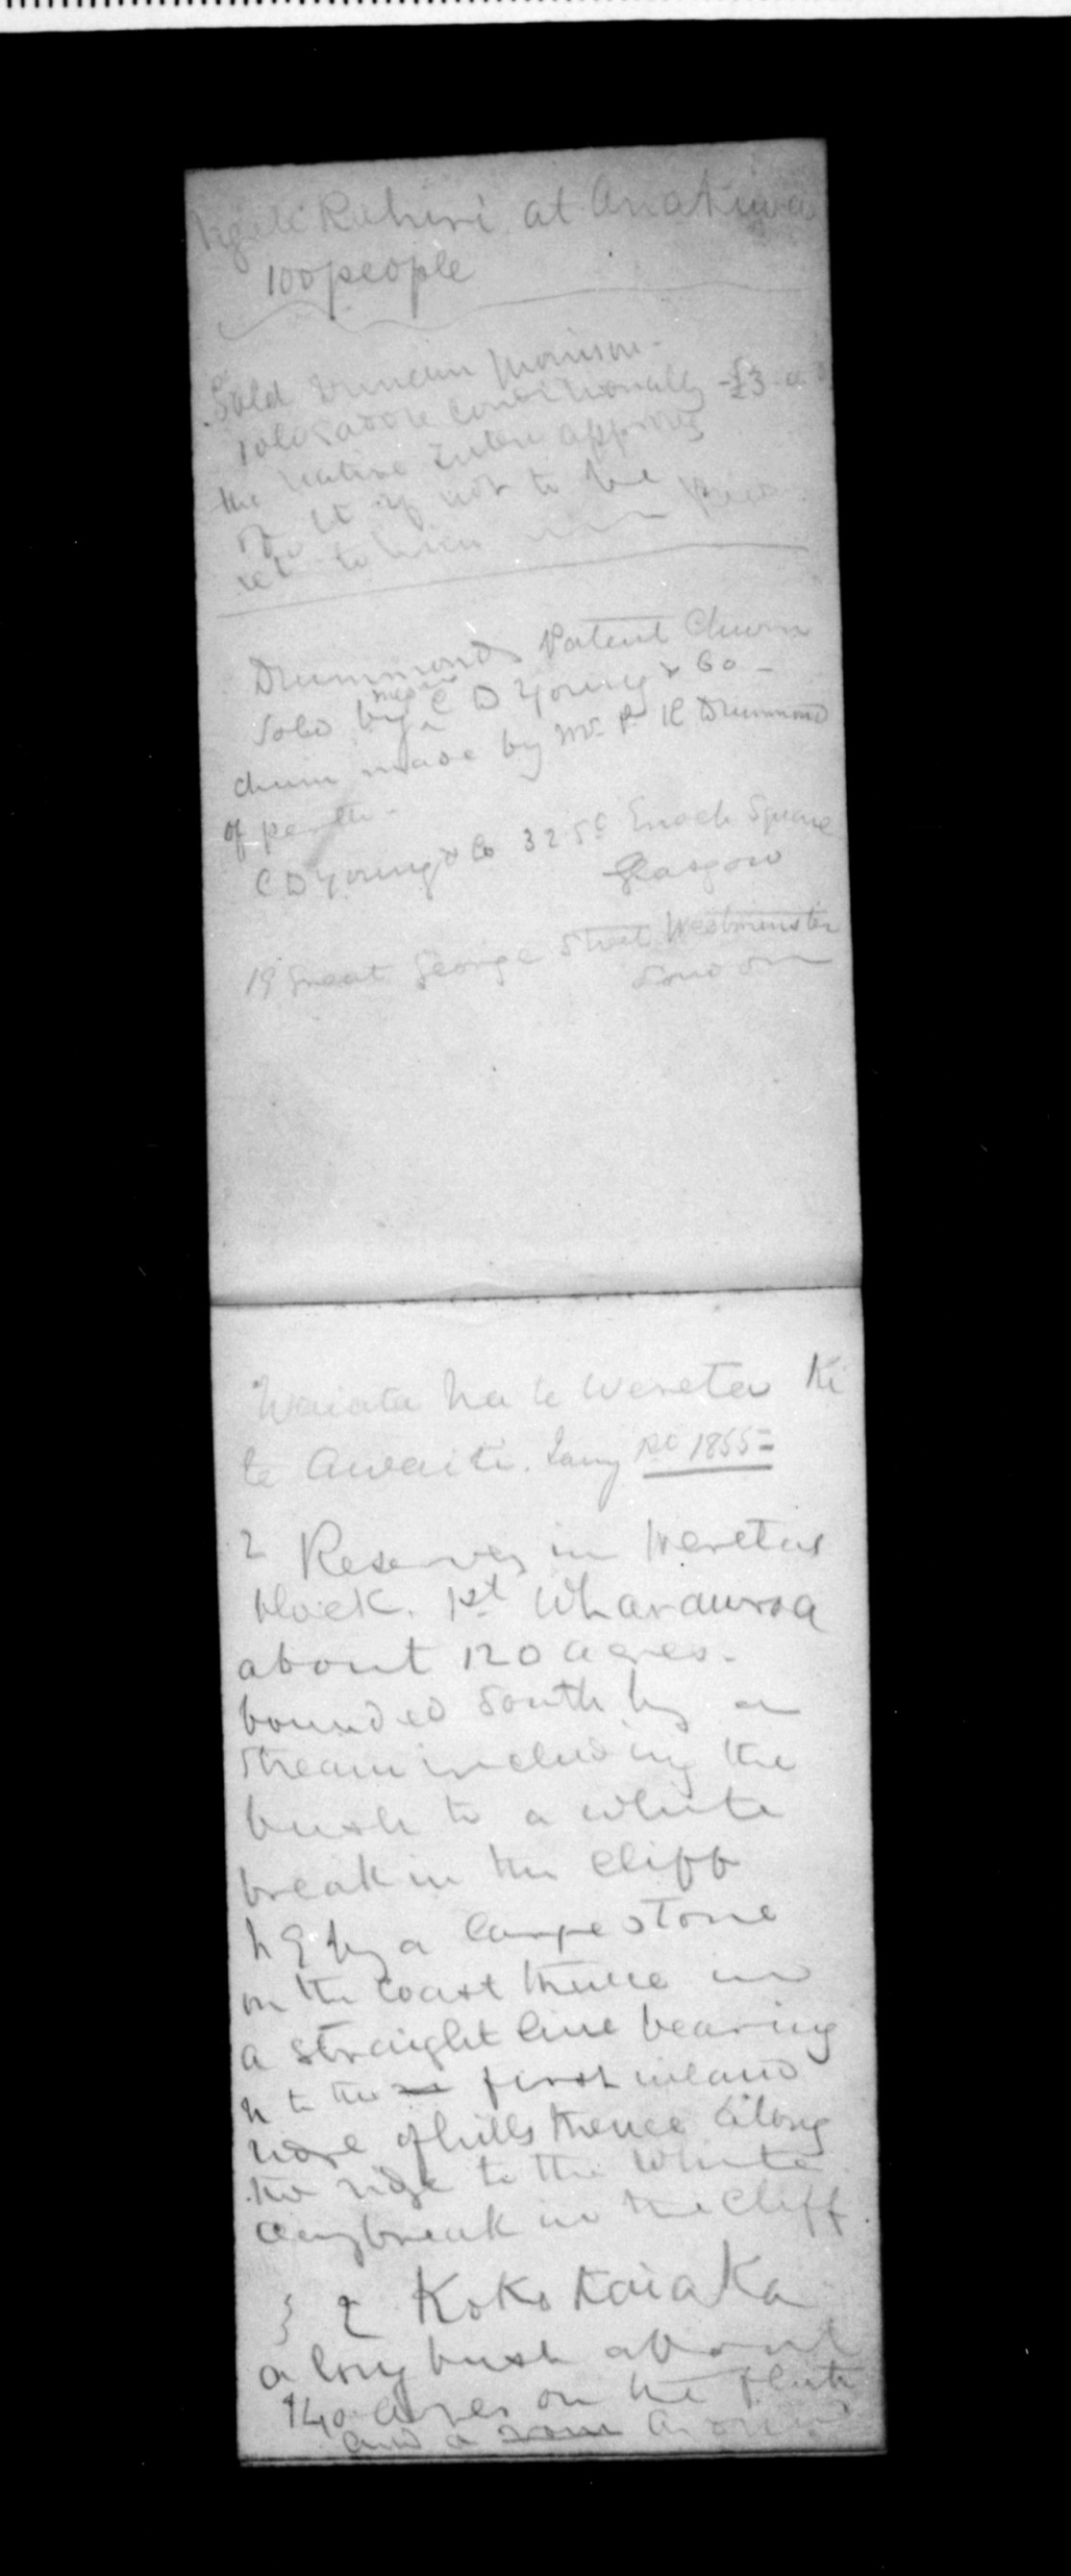 Ngati Rahiri at Anakiwa
100 people
Sold Duncan Morrison
1 old saddle conditionally £3
the native approves
of it if not to be
ret to him
Drummonds Patent Churn
sold by Messrs C D Young & Co -
churn made by Mr P R Drummond
of perth -
C D Young & Co 32 St Enoch Square
Glasgow
19 Great George Street Westminster
London
Waiata na te Wereta Ki
te Awaiti. Jany 1855 =
2 Reserves in Weretas
block. 1st Wharauroa
about 120 acres.
bounded south by a
stream including the
bush to a white
break in the cliff
by a large stone
on the coast thence in
a straight line bearing
n to the first inland
of hills thence along
the ridge to the white
clay break in the cliff.
2 Kokotaiaka
a long bush about
140 acres on the
and a